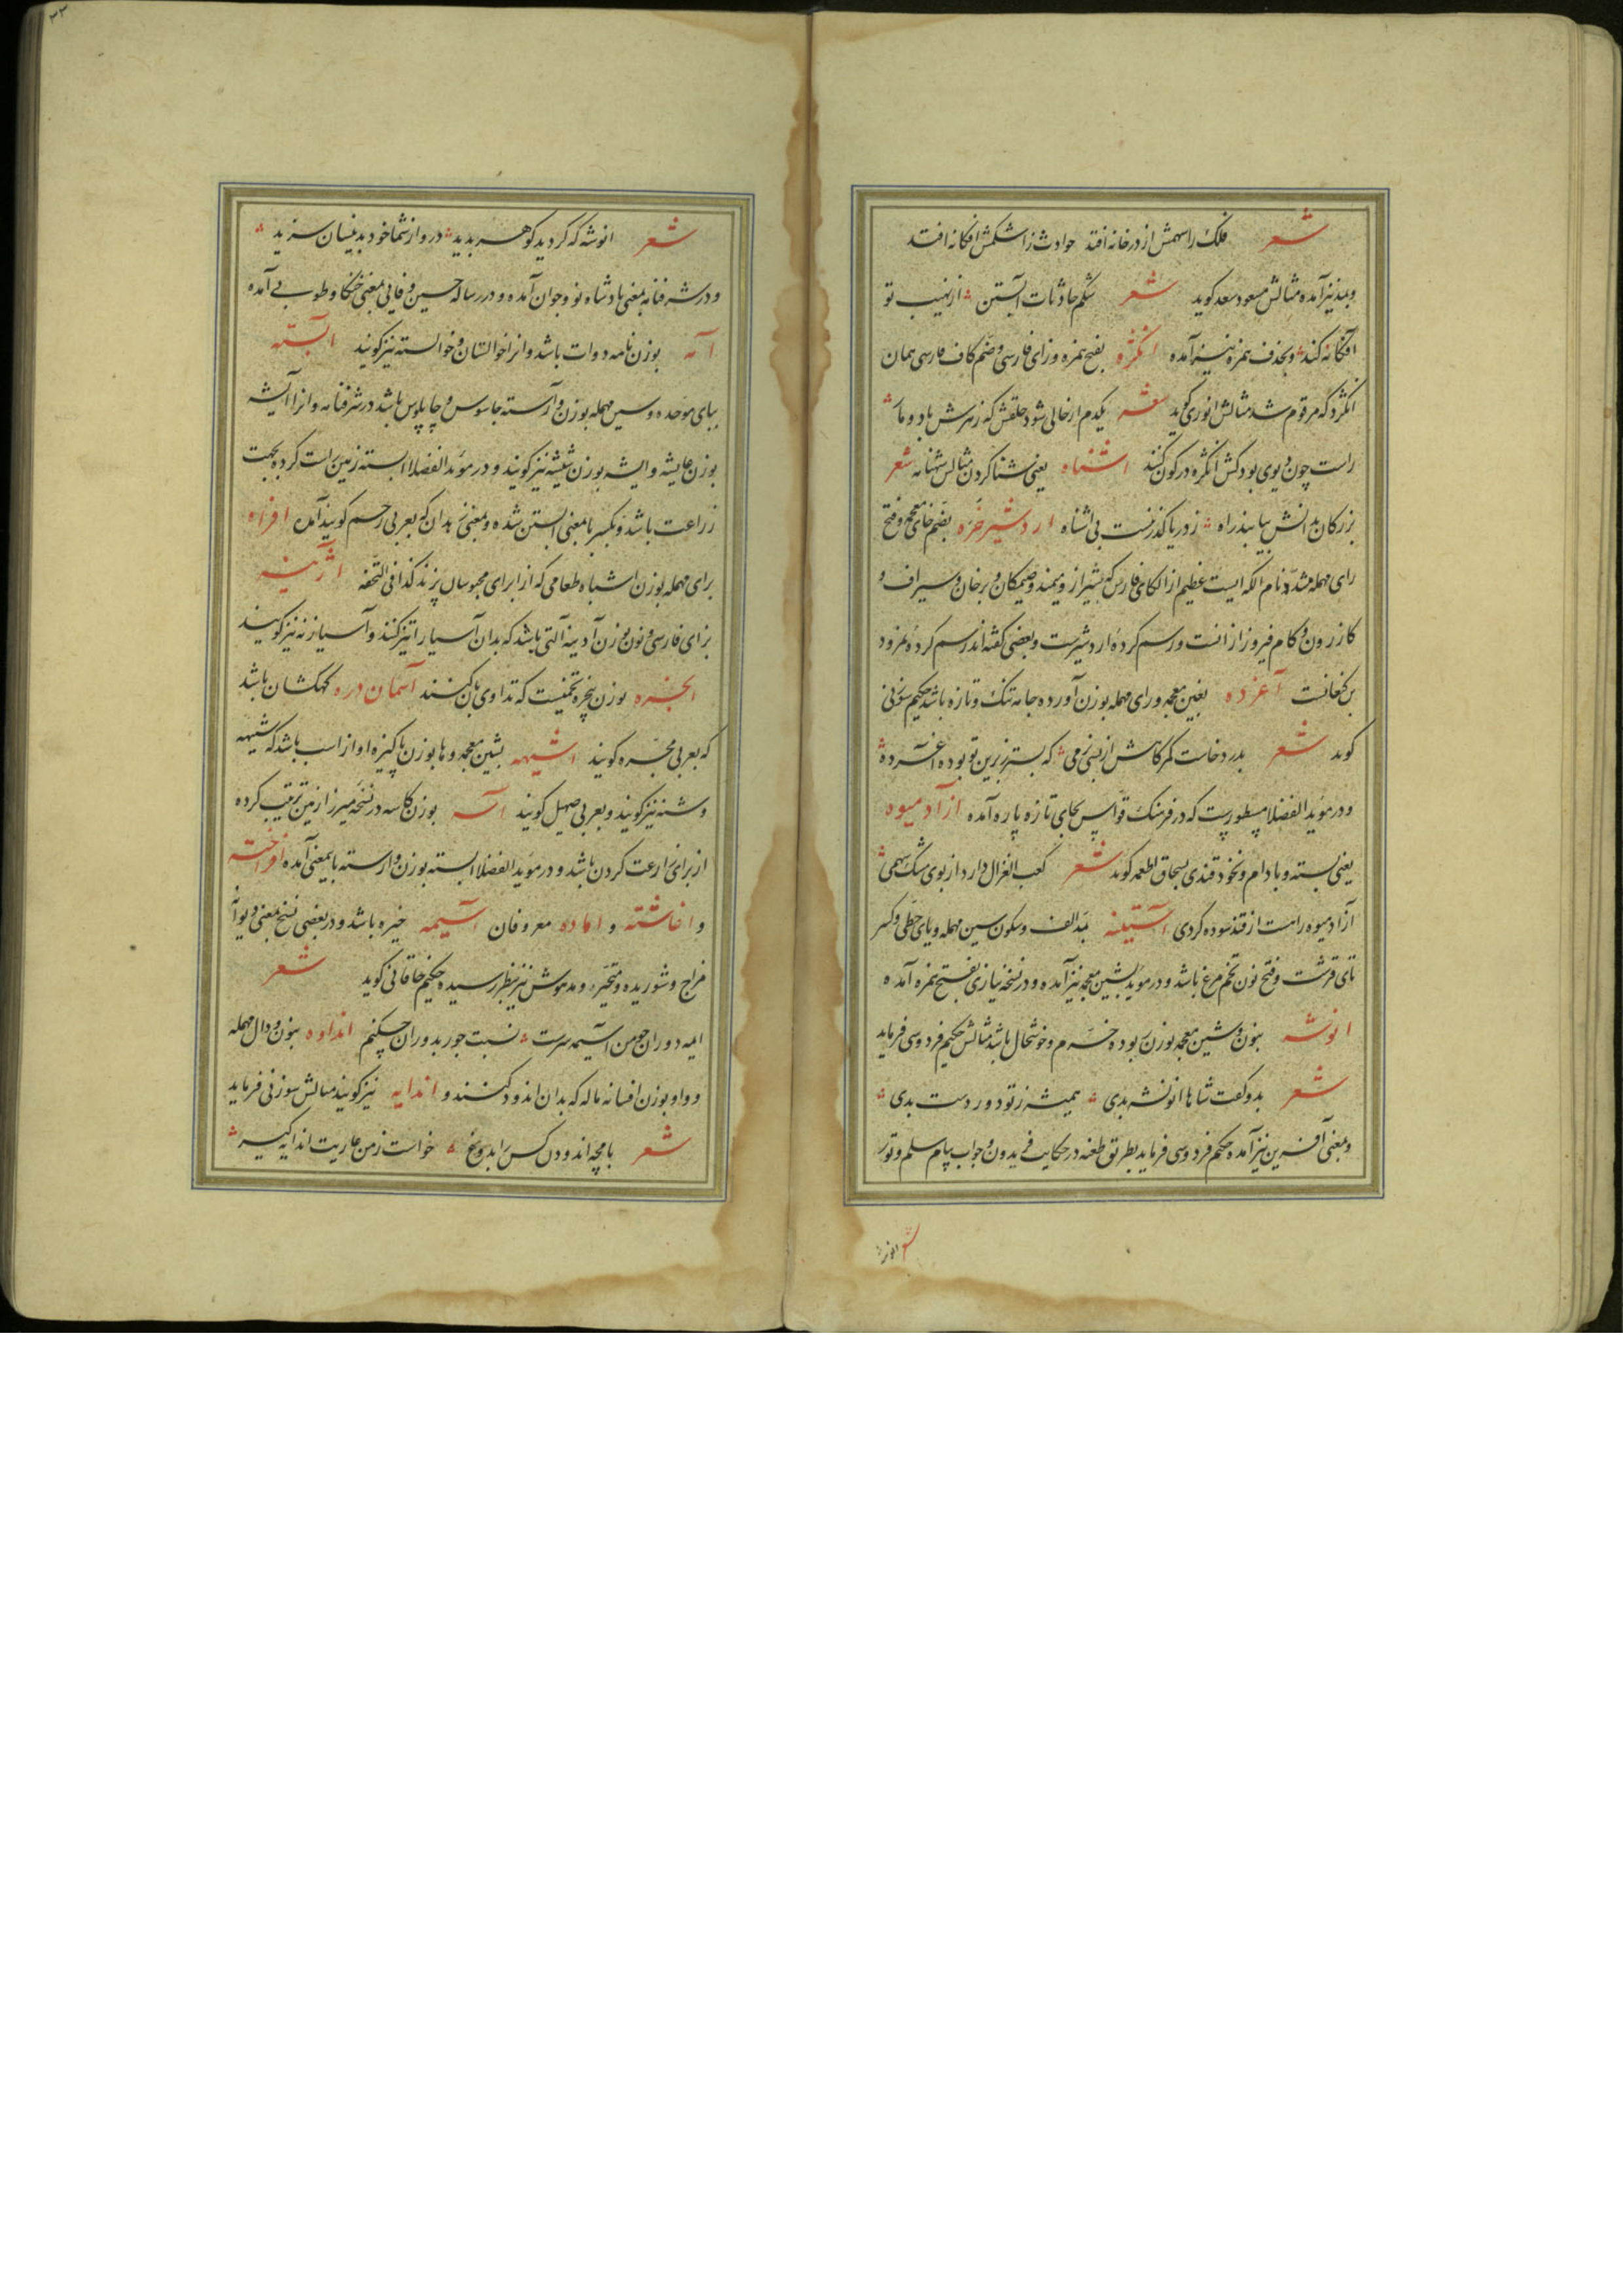 شعر فلک را سهمش از در خانه افتد حوادث را شکمش افکانه افتد
و بمد نیز آمده مثالش مسعود سعد کوید شعر شکم حادثات آبستن از نهیب تو
افکانه کند و بحذف همزه نیز آمده انکژه بفتح همزه و زای فارسی و ضم کاف فارسی همان
انکژد که مرقوم شد مثالش انوری کوید شعر یکدم ار خالی شود حلقش که زهرش باد و مار
راست چون دیوی بود کش انکژه در کون کنند اشناه یعنی شنا کردن مثالش شهنامه شعر
بزرکان بدانش بیابند راه ز دریا کذر نیست بی اشناه اردشیر خره بضم خای معجمه و فتح
رای مهمله مشدد نام الکه ایست عظیم از الکای فارس که شیراز و میمند و صیمکان و برخان و سیراف و
کازرون و کام فیروز از انست و رسم کرده اردشیرست و بعضی کفته اند رسم کرده نمرود
بن کنعانست آغرده بغین معجمه و رای مهمله بوزن آورده جامه تنک و تازه باشد حکیم سوزنی
کوید شعر بدرد خاست کمرکاهش از بنی نرمی که بستر زبرین تو بوده آغرده
و در موید الفضلا مسطورست که در فرهنک قواس بجای تازه پاره آمده ازاد میوه
یعنی پسته و بادام و نخود قندی بسحاق اطعمه کوید شعر کعب الغزال دارد از بوی مشک سهمی
آزاد میوه راهست از قند سوده کردی آستینه بمد الف و سکون سین مهمله و یای حطی و کسر
تای قرشت و فتح نون تخم مرغ باشد و در موید بشین معجمه نیز آمده و در نسخه نیازی بفتح همزه آمده
انوشه بنون و شین معجمه بوزن بوده خرم و خوشحال باشد مثالش حکیم فردوسی فرماید
شعر بدو کفت شاها انوشه بدی همیشه ز تو دور دست بدی
و بمعنی آفرین نیز آمده حکیم فردوسی فرماید بطریق طعنه در حکایت فریدون و جواب پیام سلم و تور
شعر انوشه
۲۲
شعر انوشه که کردید کوهر بدید درود از شما خود بدینسان سزید
و در شرفنامه بمعنی پادشاه نو و جوان آمده و در رساله حسین وفایی بمعنی خنکا و طوبی آمده
آمه بوزن نامه دوات باشد و انرا خوالستان و خوالسته نیز کویند آبسته
ببای موحده و سین مهمله بوزن وارسته جاسوس و چاپلوس باشد در شرفنامه و انرا آیشه
بوزن عایشه و ایشه بوزن شیشه نیز کویند و در موید الفضلا ابسته زمین راست کرده بجهت
زراعت باشد و بکسر با معنی آبستن شده و بمعنی زهدان که بعربی رحم کویند آمده افراه
برای مهمله بوزن اشباه طعامی که از برای محبوسان پزند کذا فی التحفه آژینه
بزای فارسی و نون بوزن آدینه آلتی باشد که بدان آسیا را تیز کنند و آسیازنه نیز کویند
انجره بوزن پنجره تخمیست که تداوی بان کنند آسمان دره کهکشان باشد
که بعربی مجره کویند اشیهه بشین معجمه و ها بوزن پاکیزه اواز اسب باشد که شیهه
و شنه نیز کویند و بعربی صهیل کویند آسه بوزن کاسه در نسخه میرزا زمین ترتیب کرده
از برای زراعت کردن باشد و در موید الفضلا ابسته بوزن وارسته باینمعنی آمده افراخته
و اغاشته و اماده معروفان آسیمه خیره باشد و در بعضی نسخ بمعنی دیوانه
مزاج و شوریده و متحیر و مدهوش نیز بنظر رسیده حکیم خاقانی کوید شعر
ایمه دوران چو من آسیمه سرست نسبت جور بدوران چکنم انداوه بنون و دال مهمله
و واو بوزن افسانه ماله که بدان اندود کنند و اندایه نیز کویند مثالش سوزنی فرماید
شعر بامچه اندودن کس را بدروغ خواست ز من عاریت اندایه کیر